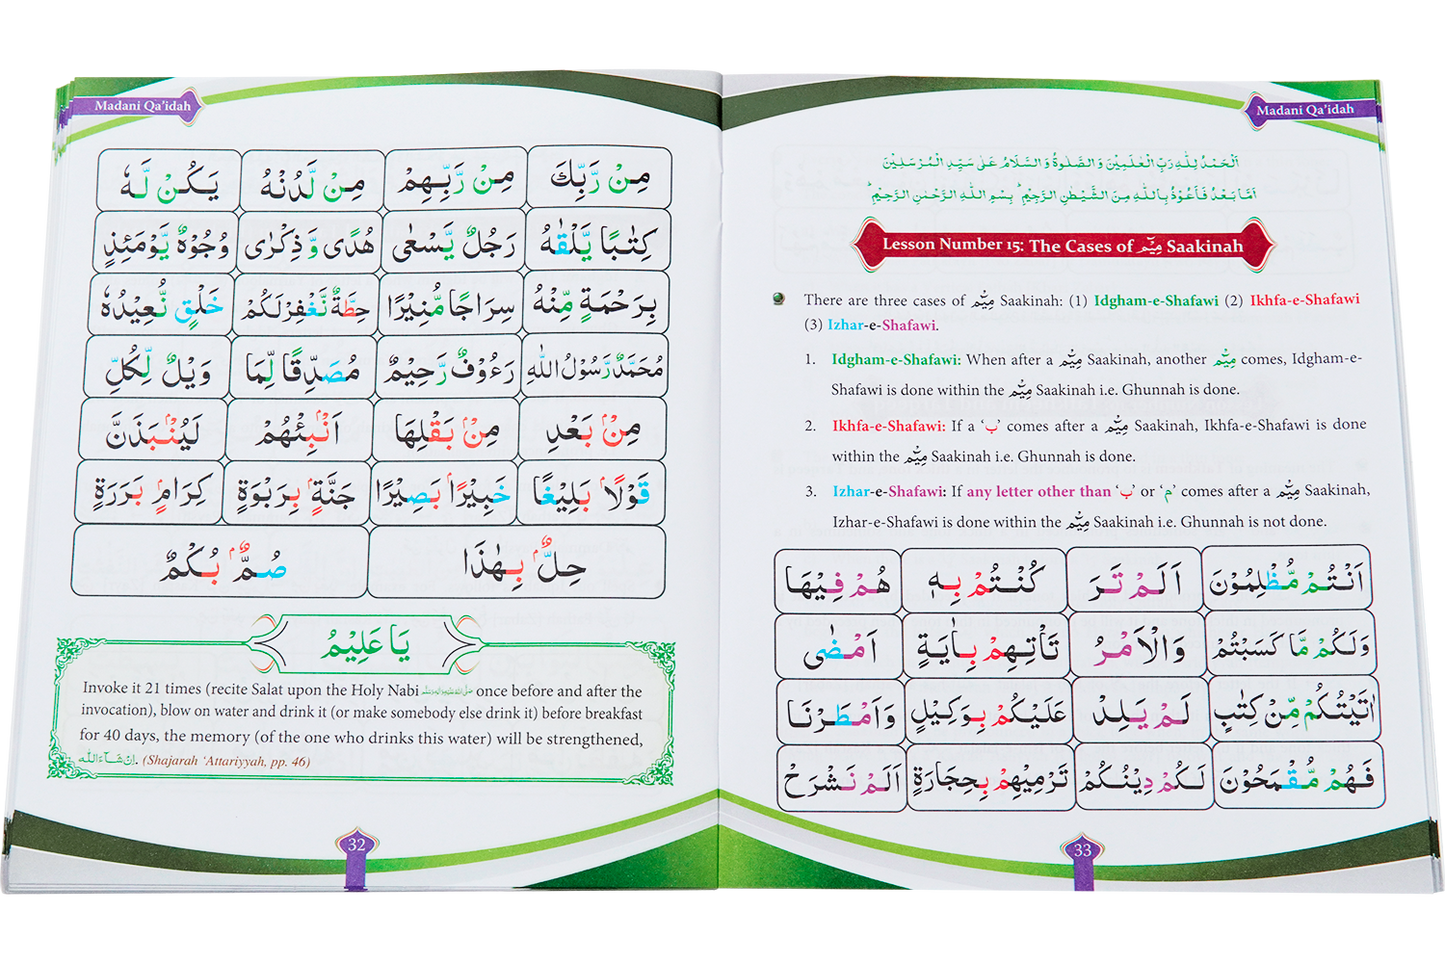 Madani Qa'idah
مِنْ رَّبِّكَ مِنْ رَّبِّهِمْ مِنْ لَّدُنْهُ يَكُنْ لَّهٗ
كِتٰبًا يَّلْقٰىهُ رَجُلٌ يَّسْعٰى هُدًى وَّ ذِكْرٰى وُجُوْهٌ يَّوْمَئِذٍ
بِرَحْمَةٍ مِّنْهُ سِرَاجًا مُّنِيْرًا حِطَّةٌ نَّغْفِرْلَكُمْ خَلْقٍ نُّعِيْدُهٗ
مُحَمَّدٌ رَّسُوْلُ اللّٰهِ رَءُوْفٌ رَّحِيْمٌ مُصَدِّقًا لِّمَا وَيْلٌ لِّكُلِّ
مِنْۢ بَعْدِ مِنْۢ بَقْلِهَا اَنْۢبِئْهُمْ لَيُنْۢبَذَنَّ
قَوْلًاۢ بَلِيْغًا خَبِيْرًاۢ بَصِيْرًا جَنَّةٍۭ بِرَبْوَةٍ كِرَامٍۭ بَرَرَةٍ
حِلٌّۢ بِهٰذَا صُمٌّۢ بُكْمٌ
يَا عَلِيْمُ
Invoke it 21 times (recite Salat upon the Holy Nabi صلى الله عليه واله وسلم once before and after the
invocation), blow on water and drink it (or make somebody else drink it) before breakfast
for 40 days, the memory (of the one who drinks this water) will be strengthened,
اِنْ شَآءَاللّٰه. (Shajarah 'Attariyyah, pp. 46)
32
Madani Qa'idah
اَلْحَمْدُ لِلّٰهِ رَبِّ الْعٰلَمِيْنَ وَ الصَّلٰوةُ وَ السَّلَامُ عَلٰى سَيِّدِ الْمُرْسَلِيْنَ
اَمَّا بَعْدُ فَاَعُوْذُ بِاللّٰهِ مِنَ الشَّيْطٰنِ الرَّجِيْمِ ؕ بِسْمِ اللّٰهِ الرَّحْمٰنِ الرَّحِيْمِ ؕ
Lesson Number 15: The Cases of مِيْم Saakinah
There are three cases of مِيْم Saakinah: (1) Idgham-e-Shafawi (2) Ikhfa-e-Shafawi
(3) Izhar-e-Shafawi.
1. Idgham-e-Shafawi: When after a مِيْم Saakinah, another مِيْم comes, Idgham-e-
Shafawi is done within the مِيْم Saakinah i.e. Ghunnah is done.
2. Ikhfa-e-Shafawi: If a 'ب' comes after a مِيْم Saakinah, Ikhfa-e-Shafawi is done
within the مِيْم Saakinah i.e. Ghunnah is done.
3. Izhar-e-Shafawi: If any letter other than 'ب' or 'م' comes after a مِيْم Saakinah,
Izhar-e-Shafawi is done within the مِيْم Saakinah i.e. Ghunnah is not done.
اَنْتُمْ مُّظْلِمُوْنَ اَلَمْ تَرَ كُنْتُمْ بِهٖ هُمْ فِيْهَا
وَلَكُمْ مَّا كَسَبْتُمْ وَالْاَمْرُ تَاْتِهِمْ بِاٰيَةٍ اَمْضٰى
اٰتَيْتُكُمْ مِّنْ كِتٰبٍ لَمْ يَلِدْ عَلَيْكُمْ بِوَكِيْلٍ وَاَمْطَرْنَا
فَهُمْ مُّقْمَحُوْنَ لَكُمْ دِيْنُكُمْ تَرْمِيْهِمْ بِحِجَارَةٍ اَلَمْ نَشْرَحْ
33